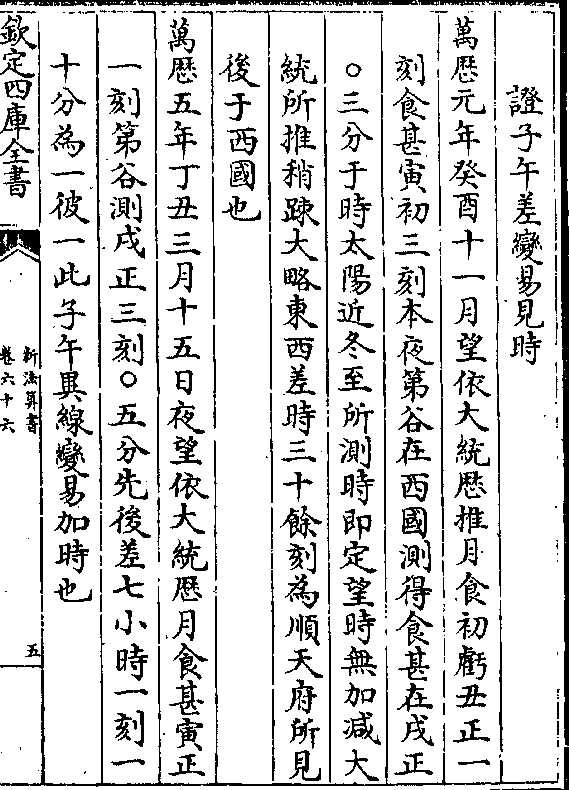 證子午差變易見時
萬厯元年癸酉十一月望依大統厯推月食初虧丑正一
刻食甚寅初三刻本夜第谷在西國測得食甚在戌正
○三分于時太陽近冬至所測時即定望時無加減大
統所推稍踈大略東西差時三十餘刻為順天府所見
後于西國也
萬厯五年丁丑三月十五日夜望依大統厯月食甚寅正
一刻第谷測戌正三刻○五分先後差七小時一刻一
十分為一彼一此子午異線變易加時也
欽定四庫全書
新法算書
卷六十六
五